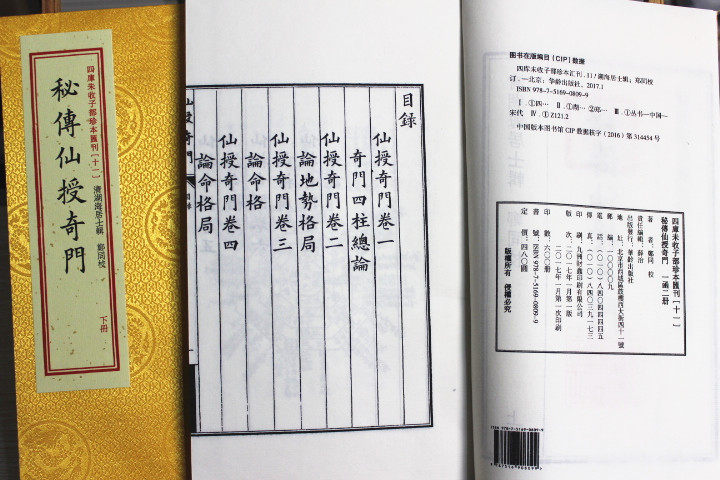 四庫未收子部珍本匯刊〔十一〕
清湖海居士輯 鄭同校
秘傳仙授奇門
下冊
目录
仙授奇門卷一
奇門四柱總論
仙授奇門卷二
論地勢格局
仙授奇門卷三
論命格
仙授奇門卷四
論命格局
仙授奇門
目錄
图书在版编目(CIP)数据
四库未收子部珍本汇刊.11/湖海居士辑;郑同校
订.—北京:华龄出版社,2017.1
ISBN 978-7-5169-0809-9
Ⅰ.①四… Ⅱ.①湖… ②郑… Ⅲ.①丛书—中国—
宋代 Ⅳ.①Z121.2
中国版本图书馆CIP数据核字(2016)第314454号
四庫未收子部珍本匯刊〔十一〕
秘傳仙授奇門 一函二册
著 者:鄭同 校
責任編輯:薛治
出版發行:華齡出版社
地 址:北京市西城區鼓樓西大街四十一號
郵 編:一〇〇〇〇九
電 話:(〇一〇)八四〇四四四四五
傳 真:(〇一〇)八四〇三九一七三
印 刷:九州財鑫印刷有限公司
版 次:二〇一七年一月第一版
二〇一七年一月第一次印刷
印 數:六〇〇册
書 號:ISBN 978-7-5169-0809-9
定 價:四八〇圓
版權所有 侵權必究
ISBN 978-7-5169-0809-9
9 787516 908099